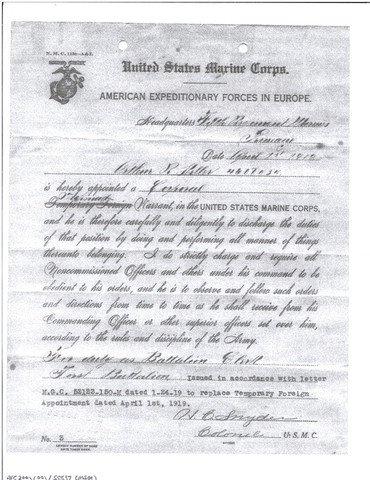 N. M. C. 1180—A&I.
United States Marine Corps.
AMERICAN EXPEDITIONARY FORCES IN EUROPE.
Headquarters Fifth Regiment Marines
Germany
Date April 1st 1919
Arthur R.
is hereby appointed a Corporal
Temporary Foreign Warrant, in the UNITED STATES MARINE CORPS,
and he is therefore carefully and diligently to discharge the duties
of that position by doing and performing all manner of things
thereunto belonging. I do strictly charge and require all
Noncommissioned Officers and others under his command to be
obedient to his orders, and he is to observe and follow such orders
and directions from time to time as he shall receive from his
Commanding Officer or other superior officers set over him,
according to the rules and discipline of the Army.
For duty as Battalion Clerk
First Battalion Issued in accordance with letter
M.G.C. 52122.150-M dated 1-24-19 to replace Temporary Foreign
Appointment dated April 1st, 1919.
H. C. Snyder
Colonel U. S. M. C.
No. 3